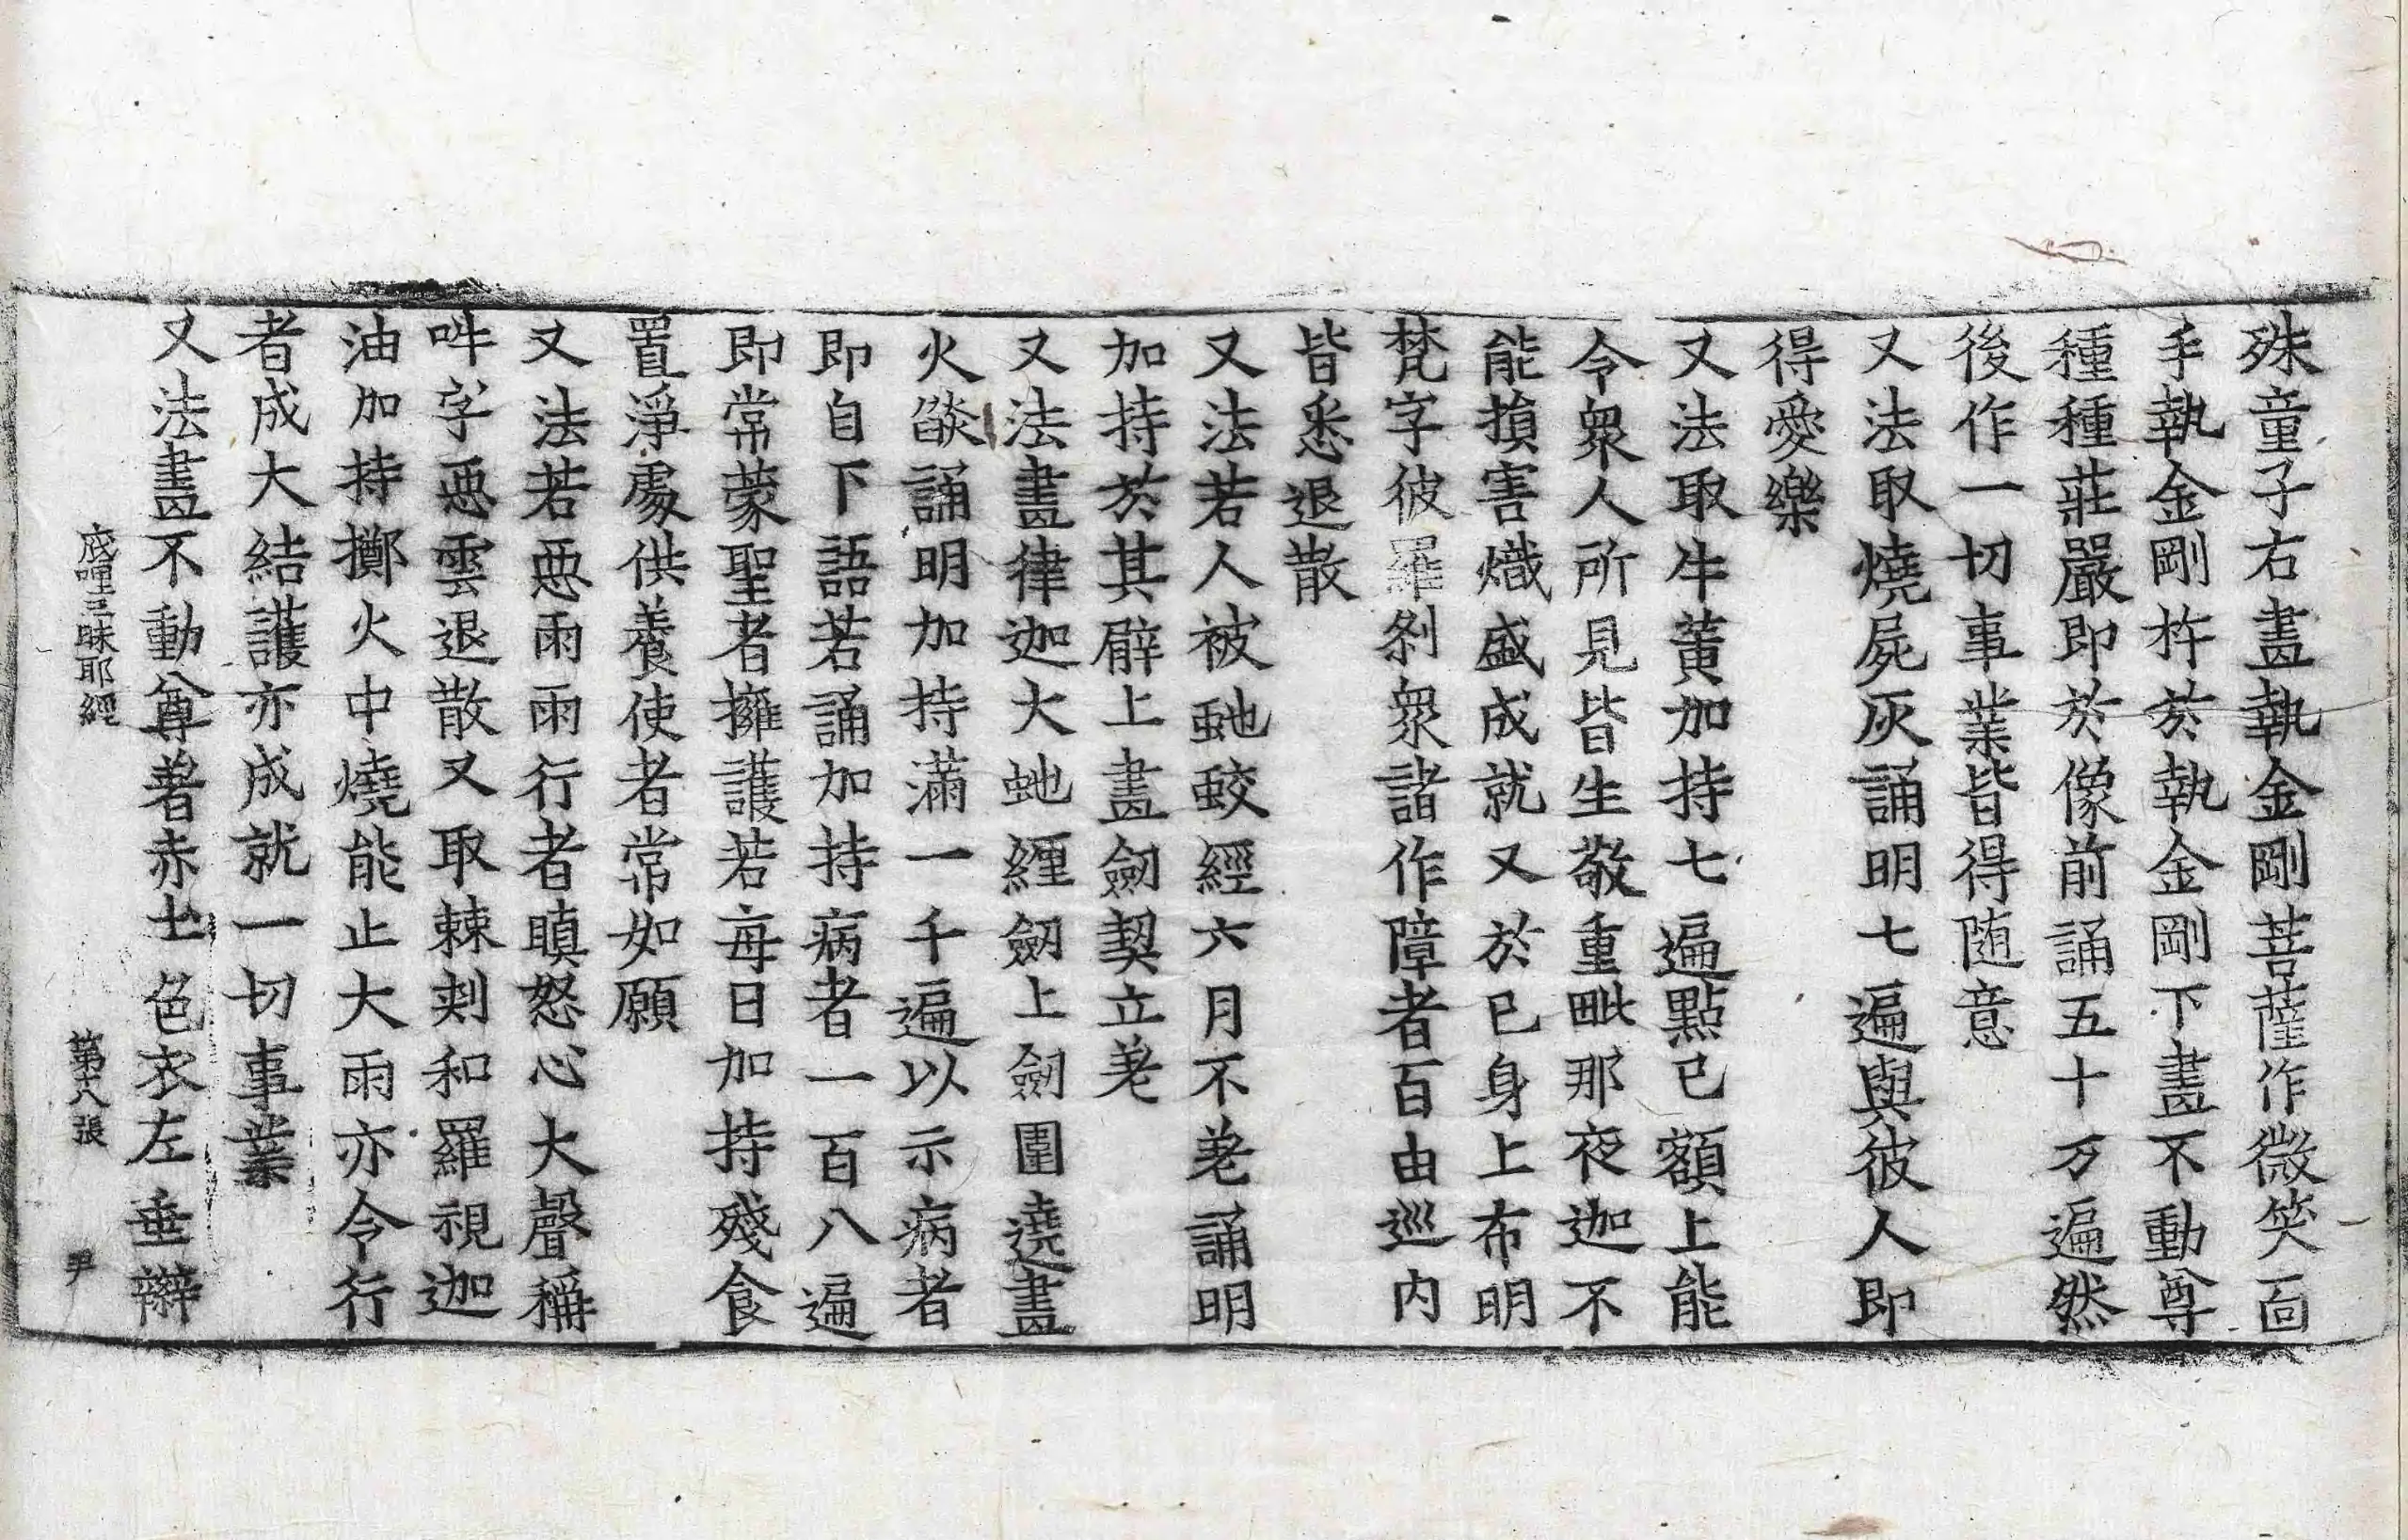 殊童子右畫執金剛菩薩作微笑面
手執金剛杵於執金剛下畫不動尊
種種莊嚴即於像前誦五十万遍然
後作一切事業皆得随意
又法取燒屍灰誦明七遍與彼人即
得愛樂
又法取牛黃加持七遍點己額上能
令衆人所見皆生敬重毗那夜迦不
能損害熾盛成就又於己身上布明
梵字彼羅刹衆諸作障者百由巡內
皆悉退散
又法若人被虵蛟經六月不差誦明
加持於其臂上畫劒契立差
又法畫律迦大虵纏劒上劒圍遶畫
火燄誦明加持滿一千遍以示病者
即自下語若誦加持病者一百八遍
即常蒙聖者擁護若每日加持殘食
置淨處供養使者常如願
又法若惡雨雨行者瞋怒心大聲稱
吽字惡雲退散又取棘刾和羅視迦
油加持擲火中燒能止大雨亦令行
者成大結護亦成就一切事業
又法畫不動尊著赤土色衣左垂辮
底哩三昧耶經　第六張　尹